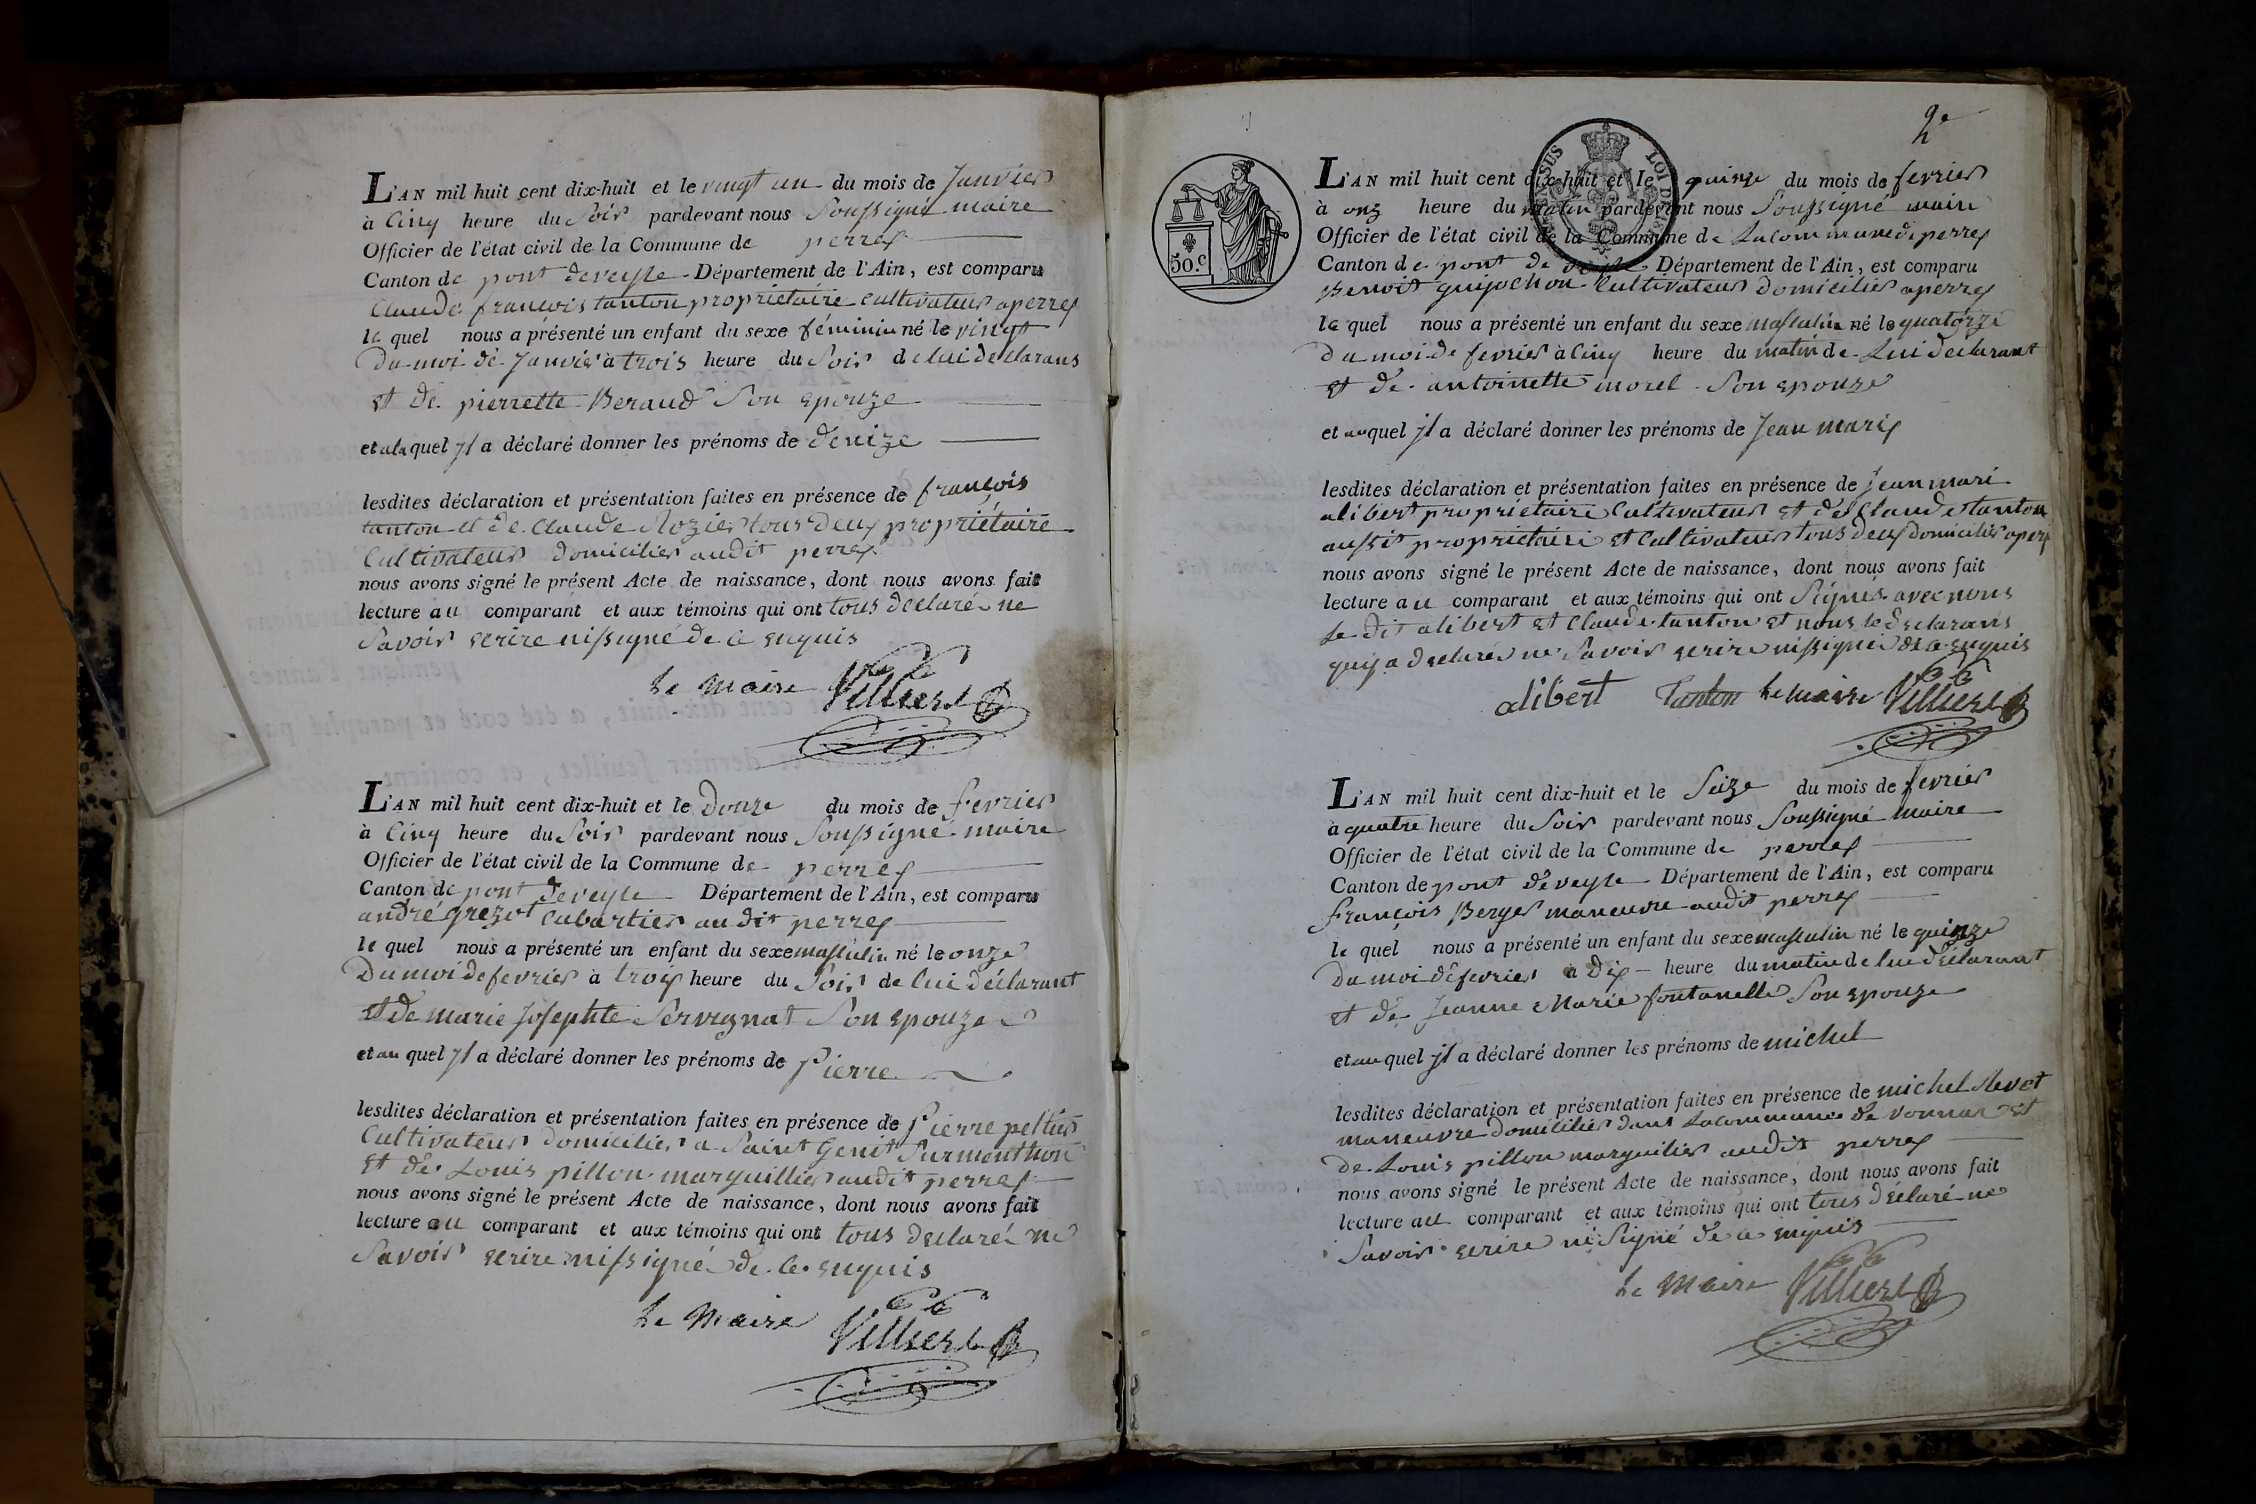 L'AN mil huit cent dix-huit et le vingt un du mois de Janvier
à Cinq heure du Soir pardevant nous Soussigné maire
Officier de l'état civil de la Commune de perrex
Canton de pont deveyle Département de l'Ain, est comparu
Claude françois tanton propriétaire Cultivateur aperrex
le quel nous a présenté un enfant du sexe féminin né le vingt
Du moi de Janvier à trois heure du Soir de lui declarans
et de pierrette Beraud Son epouze
et ala quel yl a déclaré donner les prénoms de denize
lesdites déclaration et présentation faites en présence de françois
tanton et de Claude Rozier tous deux propriétaire
Cultivateur domicilier audit perrex
nous avons signé le présent Acte de naissance, dont nous avons fait
lecture au comparant et aux témoins qui ont tous declaré ne
Savoir ecrire nissigné de ce enquis
Le Maire Villierd
L'AN mil huit cent dix-huit et le Douze du mois de fevrier
à Cinq heure du Soir pardevant nous Soussigné maire
Officier de l'état civil de la Commune de perrex
Canton de pont deveyle Département de l'Ain, est comparu
andré grezot Cabartier au dit perrex
le quel nous a présenté un enfant du sexe masculin né le onze
Du moi de fevrier à trois heure du Soir de lui déclarant
et de marie Josephte Servignat Son epouze
et au quel yl a déclaré donner les prénoms de Pierre
lesdites déclaration et présentation faites en présence de Pierre
Cultivateur domicilier a Saint Genit Surmenthon
et de Louis pillon marguillier audit perrex
nous avons signé le présent Acte de naissance, dont nous avons fait
lecture au comparant et aux témoins qui ont tous declaré ne
Savoir ecrire nissigné de ce enquis
Le Maire Villierd
2e
50.c
L'AN mil huit cent dix-huit et le quinze du mois de fevrier
à onz heure du matin pardevant nous Soussigné maire
Officier de l'état civil de la Commune de Lacommune de perrex
Canton de pont de veyle Département de l'Ain, est comparu
Benoit guijochon Cultivateur domicilier aperrex
le quel nous a présenté un enfant du sexe masculin né le quatorze
Du moi de fevrier à Cinq heure du matin de Lui declarant
et de antoinette morel Son epouze
et auquel yl a déclaré donner les prénoms de Jean marie
lesdites déclaration et présentation faites en présence de Jean mari
alibert propriétaire Cultivateur et de Claude tanton
aussit propriétaire et Cultivateur tous deux domicilier
nous avons signé le présent Acte de naissance, dont nous avons fait
lecture au comparant et aux témoins qui ont Signés avec nous
Le dit alibert et Claude tanton et nous le declarans
quiya declaré ne Savoir ecrire nissigné de ce enquis
alibert Tanton Le maire Villierd
L'AN mil huit cent dix-huit et le Seize du mois de fevrier
à quatre heure du Soir pardevant nous Soussigné maire
Officier de l'état civil de la Commune de perrex
Canton de pont deveyle Département de l'Ain, est comparu
françois Berger maneuvre audit perrex
le quel nous a présenté un enfant du sexe masculin né le quinze
Du moi defevrier a Dix heure du matin de lui déclarant
et de Jeanne Marie fontanelle Son epouze
et au quel yl a déclaré donner les prénoms de michel
lesdites déclaration et présentation faites en présence de michel Revet
maneuvre domicilier dans Lacommune de vonnas et
de Louis pillon marguilier audit perrex
nous avons signé le présent Acte de naissance, dont nous avons fait
lecture au comparant et aux témoins qui ont tous déclaré ne
Savoir ecrire ni Signé de ce enquis
Le Maire Villierd